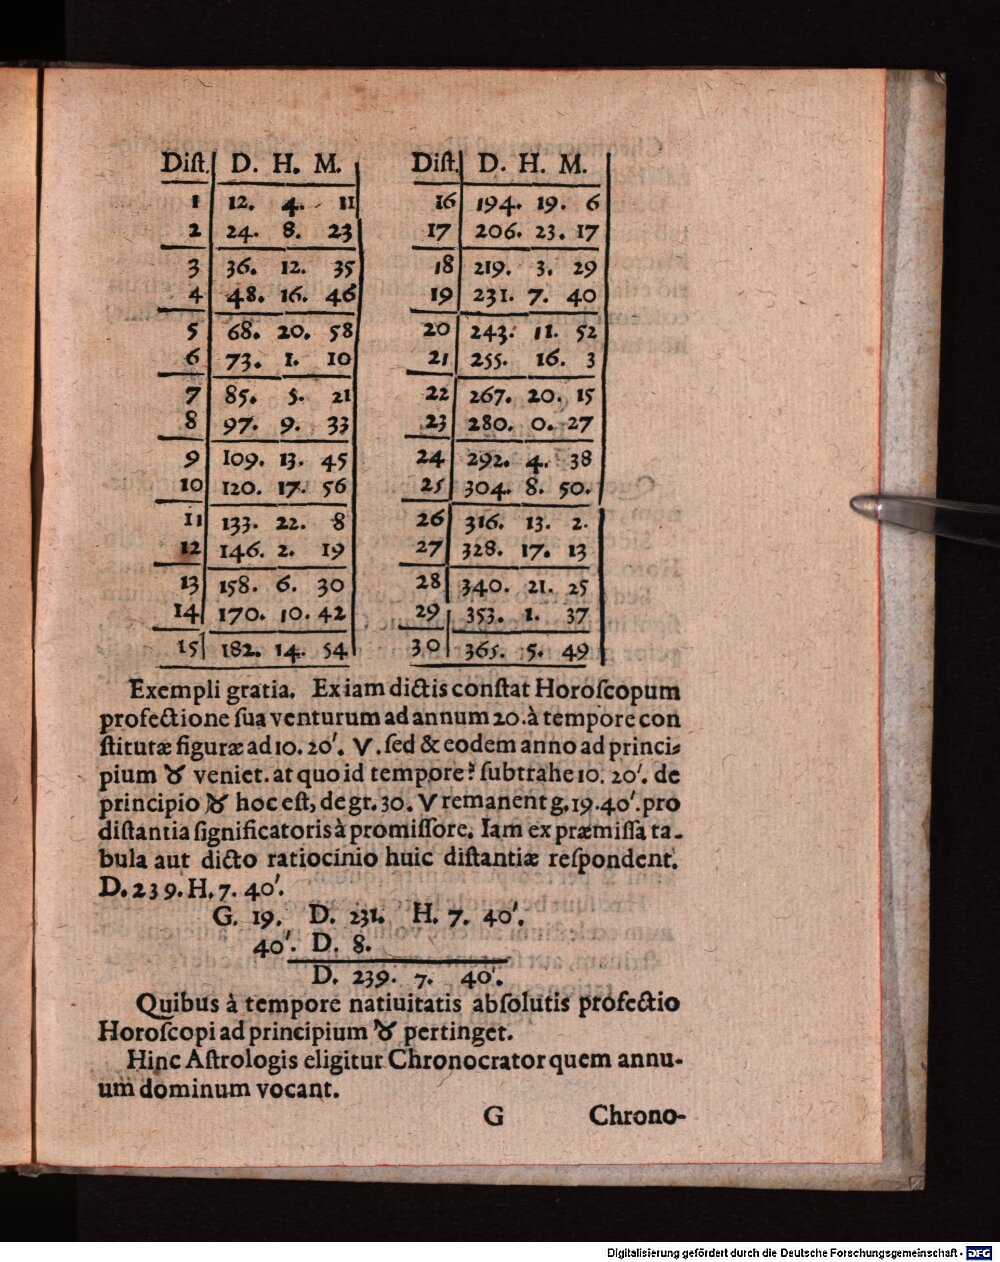 Diſt. D. H. M.
1 12. 4. 11
2 24. 8. 23
3 36. 12. 35
4 48. 16. 46
5 68. 20. 58
6 73. 1. 10
7 85. 5. 21
8 97. 9. 33
9 109. 13. 45
10 120. 17. 56
11 133. 22. 8
12 146. 2. 19
13 158. 6. 30
14 170. 10. 42
15 182. 14. 54
Diſt. D. H. M.
16 194. 19. 6
17 206. 23. 17
18 219. 3. 29
19 231. 7. 40
20 243. 11. 52
21 255. 16. 3
22 267. 20. 15
23 280. 0. 27
24 292. 4. 38
25 304. 8. 50.
26 316. 13. 2.
27 328. 17. 13
28 340. 21. 25
29 353. 1. 37
30 365. 5. 49
Exempli gratia. Ex iam dictis conſtat Horoſcopum
profectione ſua venturum ad annum 20. à tempore con
ſtitutæ figuræ ad 10. 20'. ♈. ſed & eodem anno ad princi-
pium ♉ veniet. at quo id tempore? ſubtrahe 10. 20'. de
principio ♉ hoc eſt, de gr. 30. ♈ remanent g. 19. 40'. pro
diſtantia ſignificatoris à promiſſore. Iam ex præmiſſa ta-
bula aut dicto ratiocinio huic diſtantiæ reſpondent.
D. 239. H. 7. 40'.
G. 19. D. 231. H. 7. 40'.
40'. D. 8.
D. 239. 7. 40'.
Quibus à tempore natiuitatis abſolutis profectio
Horoſcopi ad principium ♉ pertinget.
Hinc Aſtrologis eligitur Chronocrator quem annu-
um dominum vocant.
G Chrono-
Digitalisierung gefördert durch die Deutsche Forschungsgemeinschaft - DFG